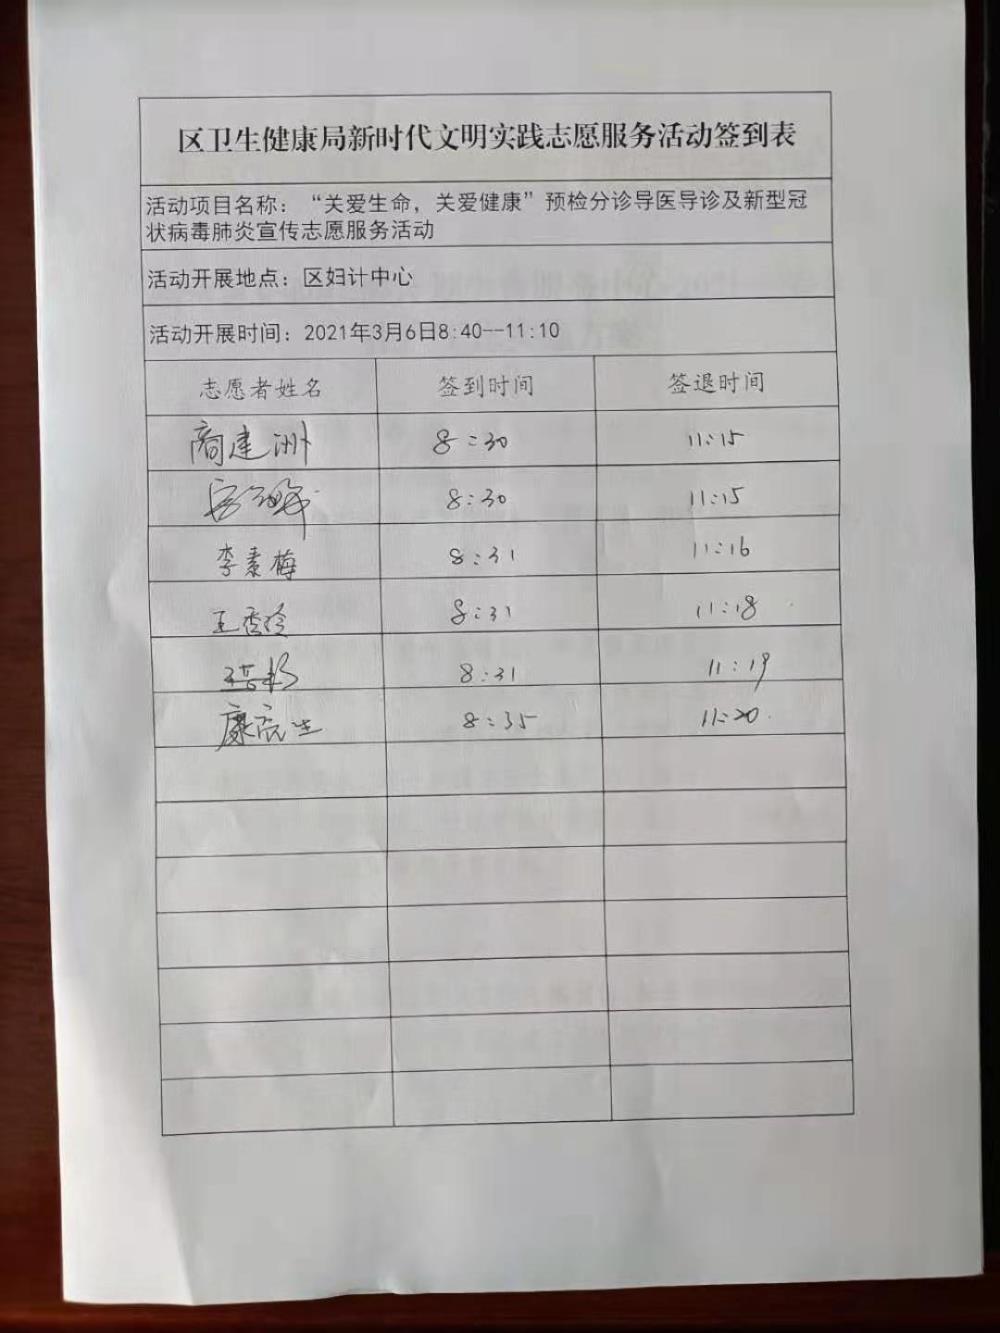 区卫生健康局新时代文明实践志愿服务活动签到表
活动项目名称：“关爱生命，关爱健康”预检分诊导医导诊及新型冠
状病毒肺炎宣传志愿服务活动
活动开展地点：区妇计中心
活动开展时间：2021年3月6日8:40--11:10
志愿者姓名 签到时间 签退时间
商建洲 8:30 11:15
8:30 11:15
李素梅 8:31 11:16
王香玲 8:31 11:18
8:31 11:19
康亮生 8:35 11:20